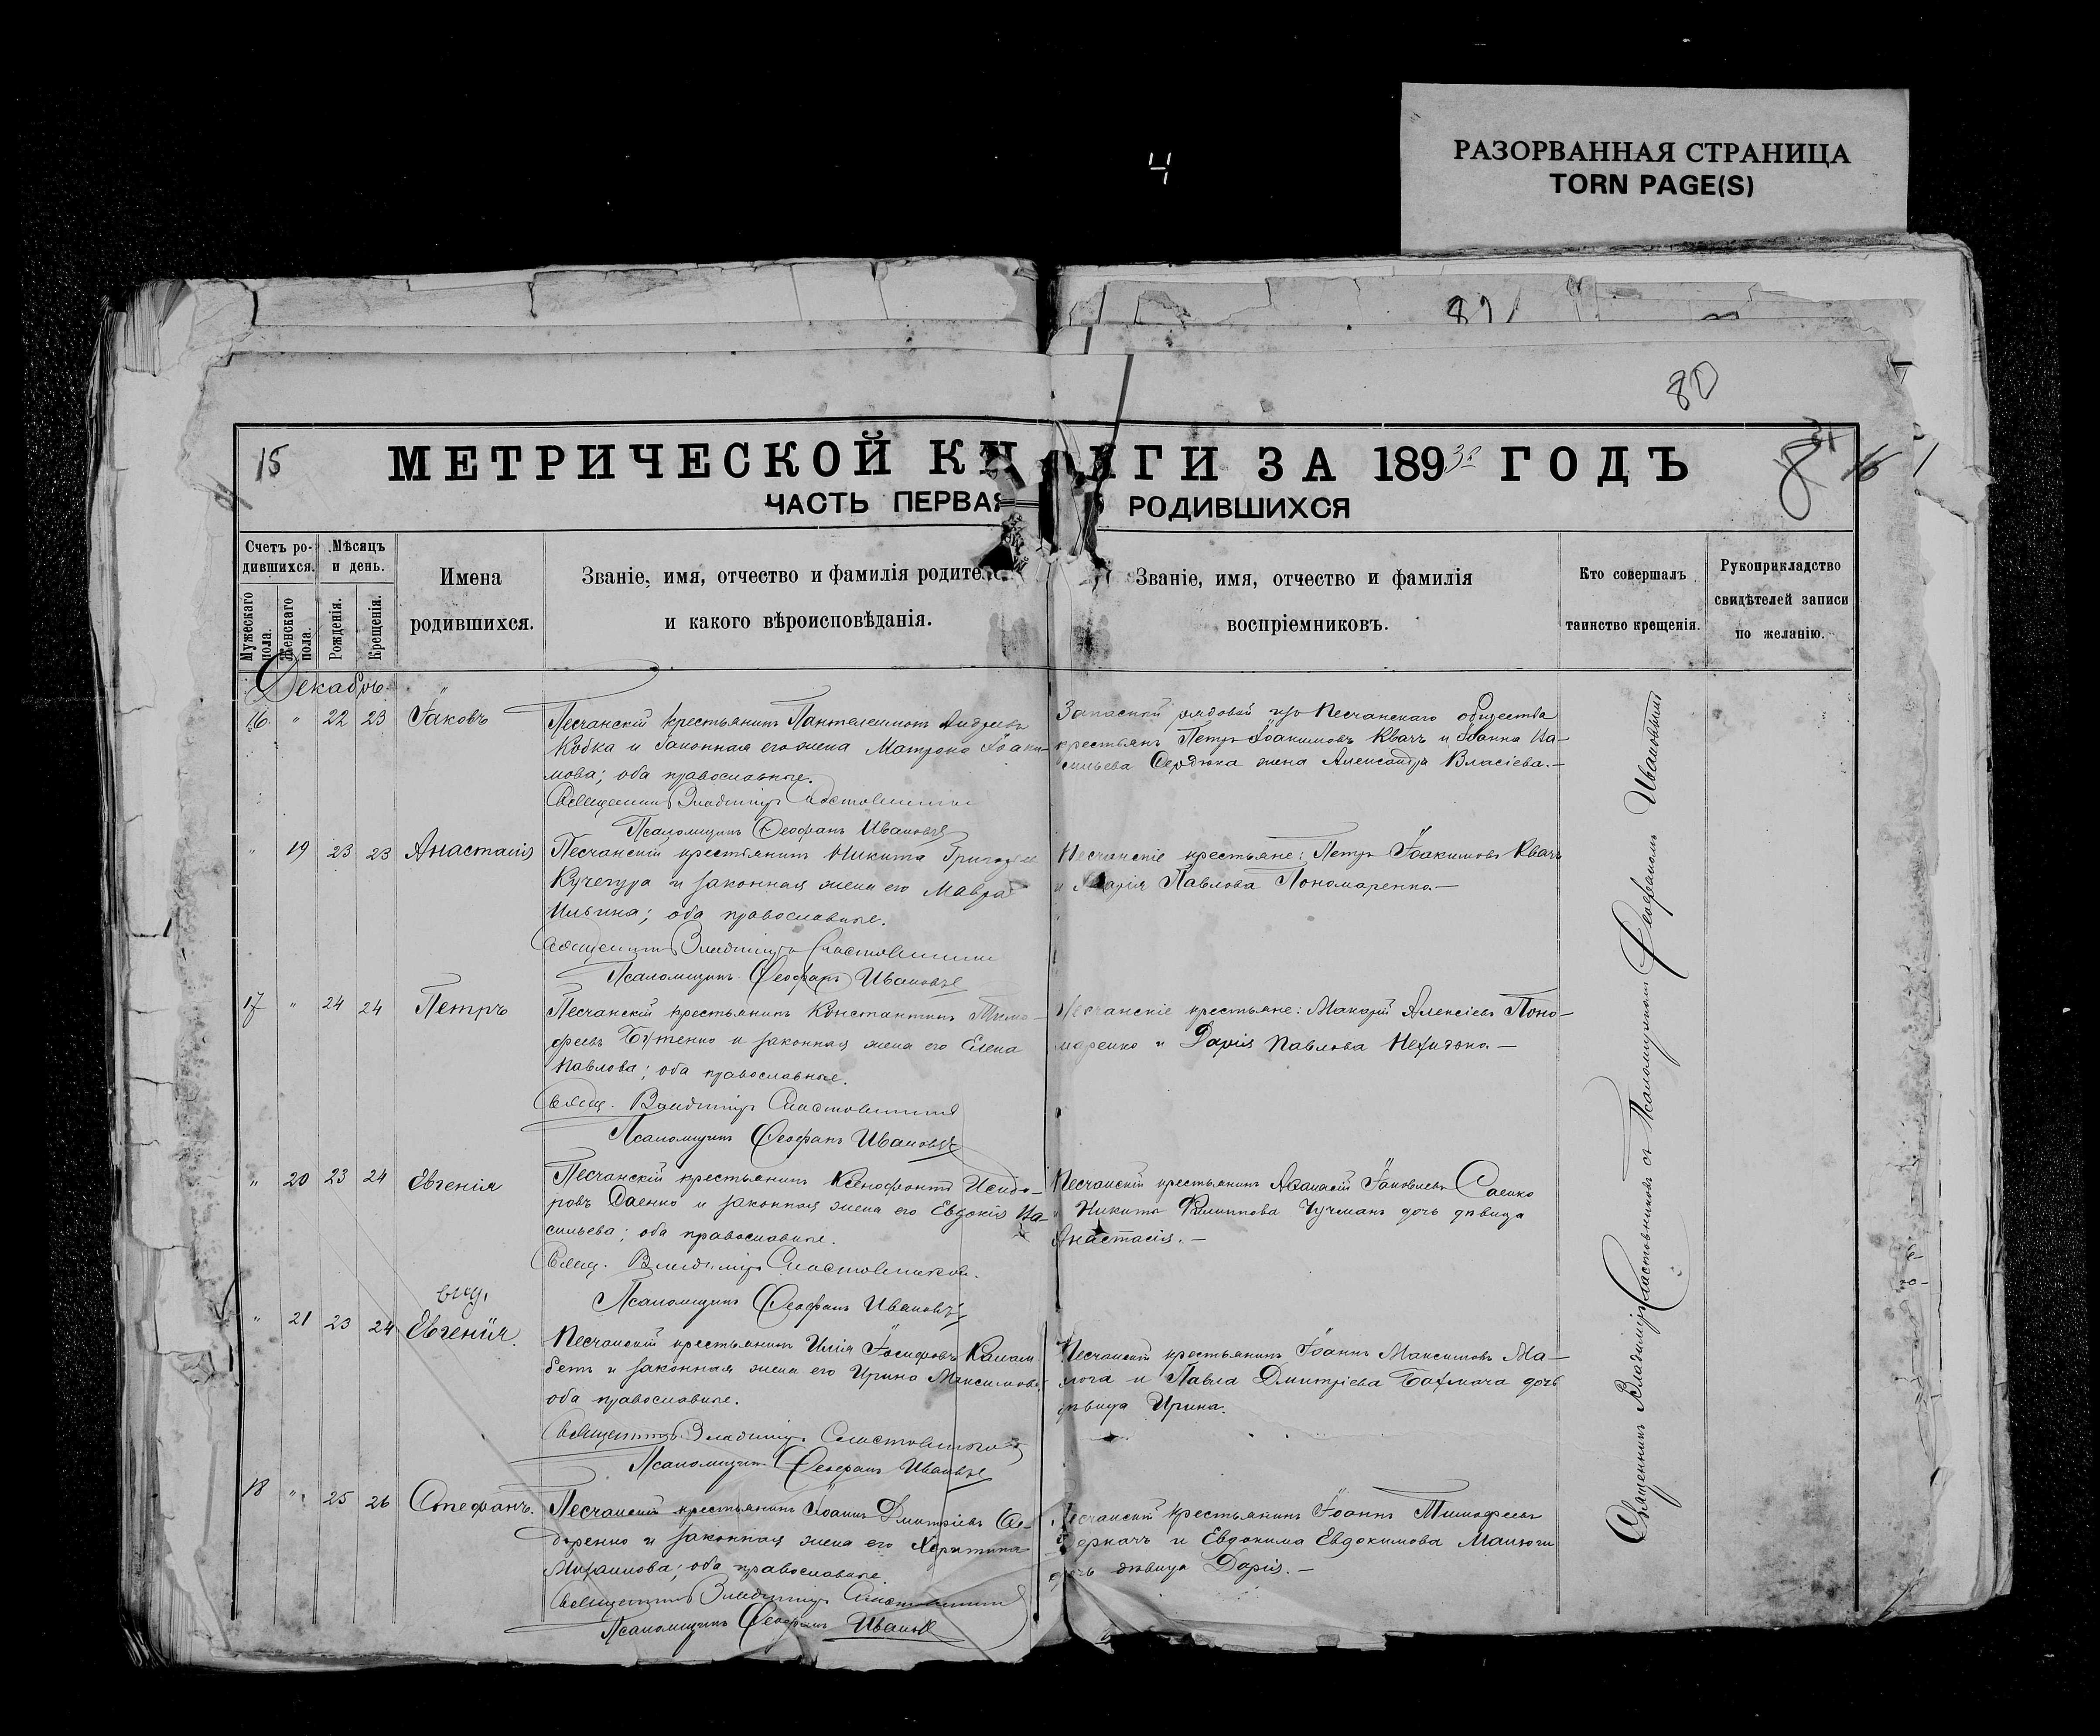 РАЗОРВАННАЯ СТРАНИЦА
TORN PAGE(S)
4
81
80
15
МЕТРИЧЕСКОЙ КНИГИ ЗА 1893 ГОДЪ
16
ЧАСТЬ ПЕРВАЯ РОДИВШИХСЯ
Счетъ ро-
дившихся.
Мѣсяцъ
и день.
Мужескаго
пола.
Женскаго
пола.
Рожденія.
Крещенія.
Имена
родившихся.
Званіе, имя, отчество и фамилія родител
и какого вѣроисповѣданія.
Званіе, имя, отчество и фамилія
воспріемниковъ.
Кто совершалъ
таинство крещенія.
Рукоприкладство
свидѣтелей записи
по желанію.
Декабрь.
16. " 22 23 Іаковъ
Песчанскій крестьянинъ Пантелеимонъ Андреевъ
Кобка и законная его жена Матрона Іоаки-
мова; оба православные.
Священникъ Владиміръ Сластовников
Псаломщикъ Ѳеофанъ Ивановъ
Запасной рядовой изъ Песчанскаго общества
крестьянъ Петръ Іоакимовъ Квачъ и Іоанна Ва-
сильева Сердюка жена Александра Власіева.—
" 19 23 23 Анастасія
Песчанскій крестьянинъ Никита Григорьев
Кучегура и законная жена его Мавра
Ильина; оба православные.
Священникъ Владиміръ Сластовников
Псаломщикъ Ѳеофанъ Ивановъ
Песчанскіе крестьяне: Петръ Іоакимовъ Квачъ
и Марія Павлова Пономаренко—
17 " 24 24 Петръ
Песчанскій крестьянинъ Константинъ Тимо-
феевъ Бутенко и законная жена его Елена
Павлова; оба православные.
Свящ. Владиміръ Сластовников
Псаломщикъ Ѳеофанъ Ивановъ
Песчанскіе крестьяне: Макарій Алексіевъ Поно-
маренко и Дарія Павлова —
" 20 23 24 Евгенія
Песчанскій крестьянинъ Ксенофонтъ Исидо-
ровъ Саенко и законная жена его Евдокія Ва-
сильева; оба православные.
Свящ. Владиміръ Сластовников.
Псаломщикъ Ѳеофанъ Ивановъ
Песчанскій крестьянинъ Аѳанасій Іаковлевъ Саенко
и Никиты Филиппова дочь дѣвица
Анастасія.—
" 21 23 24 Евгенія.
Песчанскій крестьянинъ Илія Іосифовъ
и законная жена его Ирина Максимова
оба православные.
Священникъ Владиміръ Сластовников
Псаломщикъ Ѳеофанъ Ивановъ
Песчанскій крестьянинъ Іоаннъ Максимовъ Ма-
и Павла Дмитріева Бахмача дочь
дѣвица Ирина.
18 " 25 26 Стефанъ.
Песчанскій крестьянинъ Іоаннъ Дмитріевъ Си-
доренко и законная жена его Харитина
Михаилова; оба православные.
Священникъ Владиміръ Сластовников
Псаломщикъ Ѳеофанъ Ивановъ
Песчанскій крестьянинъ Іоаннъ Тимофеевъ
Деркачъ и Евдокима Евдокимова
дочь дѣвица Дарія.—
Священникъ Владиміръ Сластовниковъ съ Псаломщикомъ Ѳеофаномъ Ивановымъ